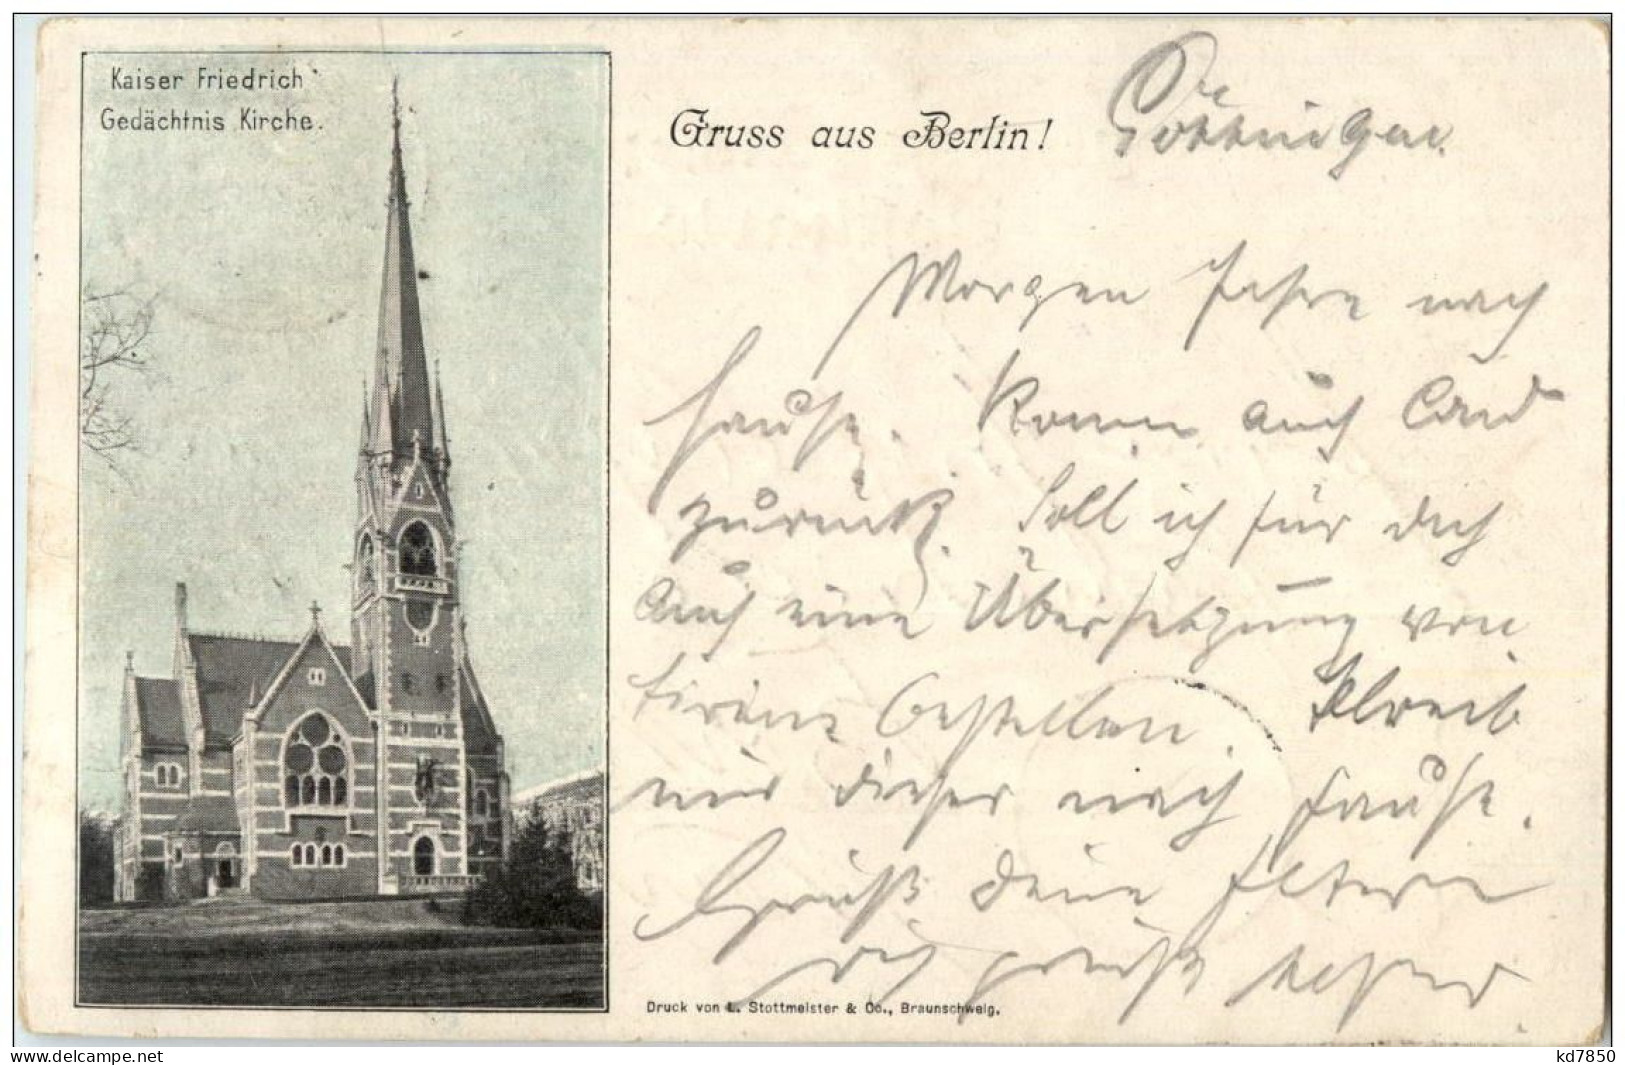 Kaiser Friedrich
Gedächtnis Kirche.
Gruss aus Berlin!
Morgen fahre nach
Hause. Komm auch bald
zurück. Soll ich für dich
auch eine Übersetzung von
bestellen. Schreib
mir dieser nach Hause.
Grüß deine Eltern
dich grüßt
Druck von L. Stottmeister & Co., Braunschweig.
www.delcampe.net
kd7850